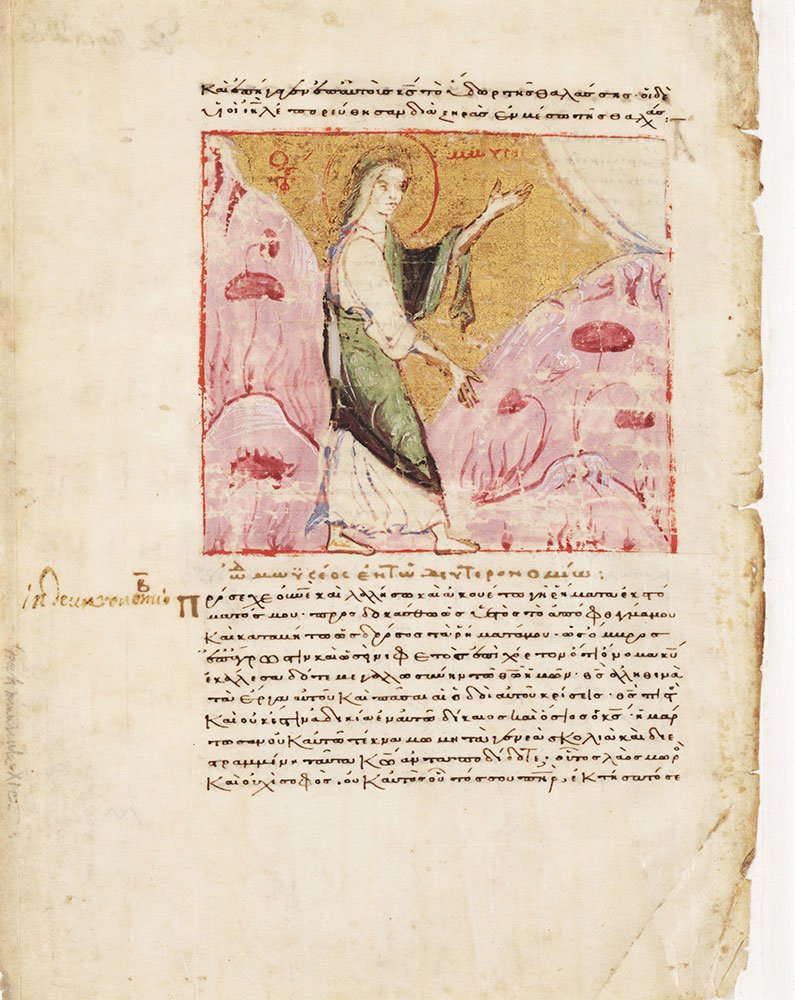 Καὶ ἐπήγαγεν ἐπ' αὐτοὺς κς τὸ ὕδωρ τῆς θαλάσσης· οἱ δὲ
υἱοὶ ιηλ ἐπορεύθησαν διὰ ξηρᾶς ἐν μέσω τῆς θαλάσ
ὠδ μωϋσέος ἐν τῶ δευτερονομίω:
Πρόσεχε οὐνὲ καὶ λαλήσω καὶ ἀκουέτω γῆ ῥήματα ἐκ στό
ματός μου· προσδοκάσθω ὡς ὑετὸς τὸ ἀπόφθεγμά μου
Καὶ καταβήτω ὡς δρόσος τὰ ῥήματά μου· ὡσεὶ ὄμβρος
ἐπ' ἄγρωστιν καὶ ὡσεὶ νιφετὸς ἐπὶ χόρτον ὅτι ὄνομα κυ
ἐκάλεσα δότε μεγαλωσύνην τῶ θω ἡμῶν· θς ἀληθινὰ
τὰ ἔργα αὐτοῦ Καὶ πᾶσαι αἱ ὁδοὶ αὐτοῦ κρίσεις· θς πιστ
Καὶ οὐκ ἔστιν ἀδικία ἐν αὐτῶ δίκαιος καὶ ὅσιος ὁ κς· ἡμάρ
τοσαν οὐκ αὐτῶ τέκνα μωμητὰ γενεὰ σκολιὰ καὶ διε
στραμμένη ταῦτα κω ἀνταποδίδοτε; οὗτος λαὸς μωρὸς
Καὶ οὐχὶ σοφός. οὐκ αὐτὸς οὗτός σου πηρ, ἐκτήσατό σε